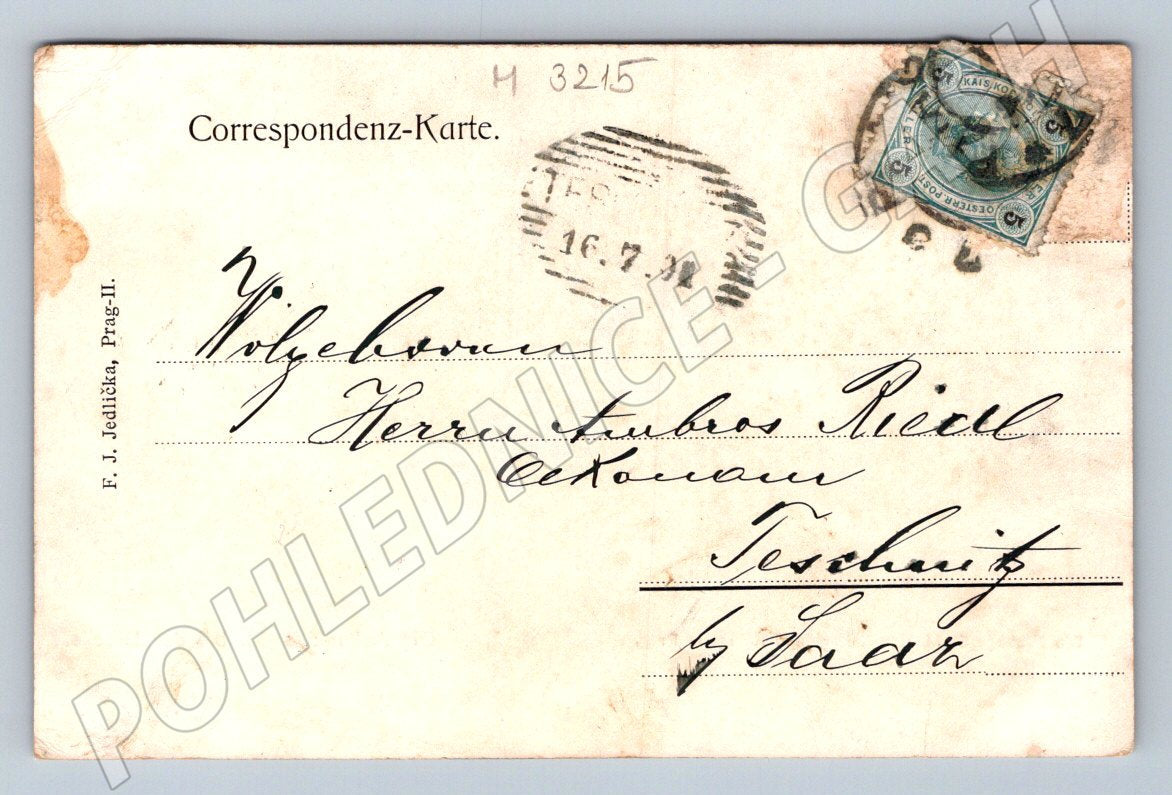 H 3215
Correspondenz-Karte.
KAIS. KÖN.
OESTERR. POST.
5 5 5 5
16.7.
F. J. Jedlička, Prag-II.
Wolgeboren
Herrn Ambros Riedl
Oekonom
Teschnitz
by Saaz
POHLEDNICE -